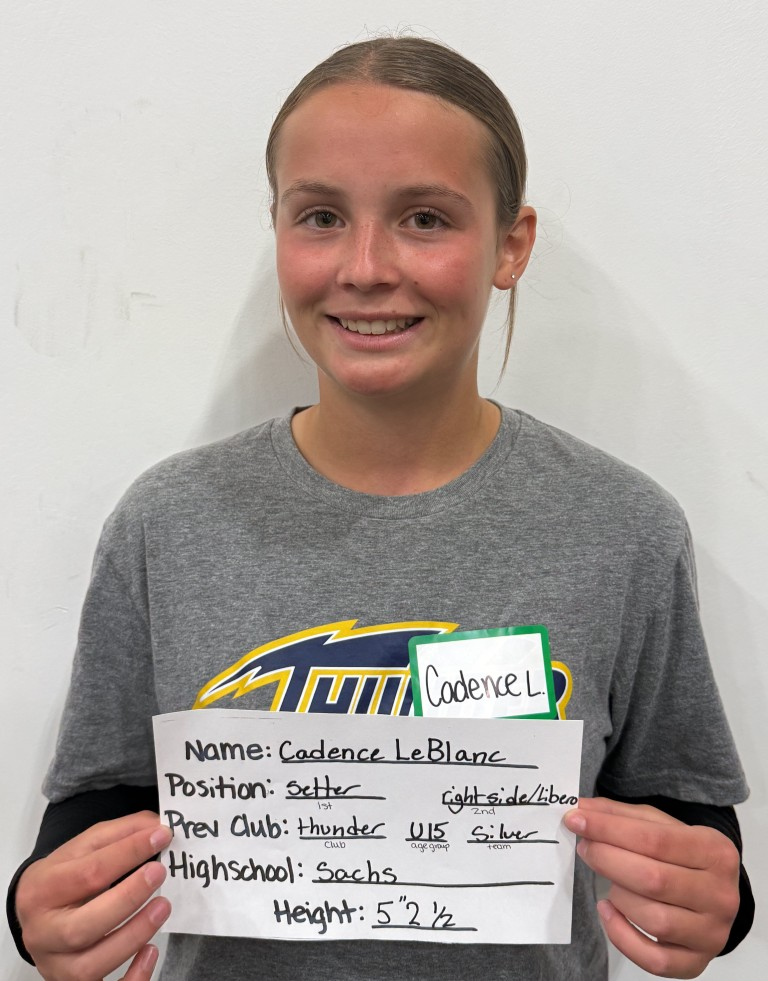 THU
Cadence L.
Name: Cadence LeBlanc
Position: Setter right side/Libero
1st 2nd
Prev Club: thunder U15 Silver
club age group team
Highschool: Sachs
Height: 5"2 ½